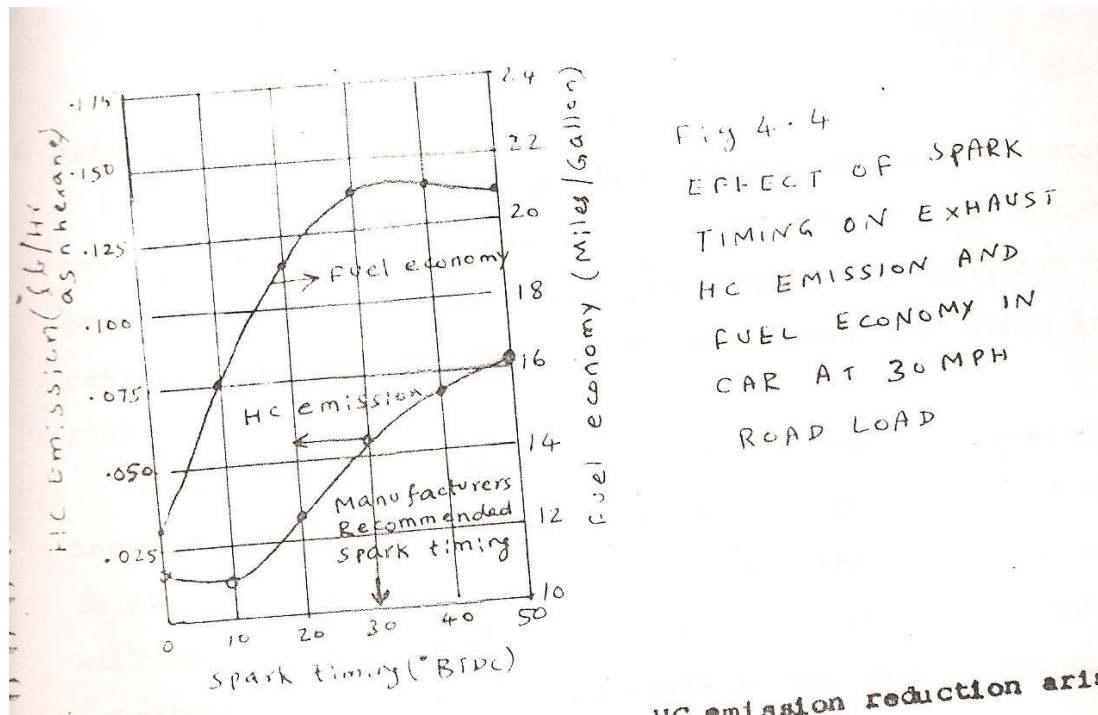 .175
.150
.125
.100
.075
.050
.025
HC Emission (lb/Hr
as nhexane)
24
22
20
18
16
14
12
10
Fuel economy (Miles/Gallon)
→ Fuel economy
HC emission
Manufacturers
Recommended
Spark timing
0 10 20 30 40 50
Spark timing (°BTDC)
Fig 4.4
EFFECT OF SPARK
TIMING ON EXHAUST
HC EMISSION AND
FUEL ECONOMY IN
CAR AT 30 MPH
ROAD LOAD
HC emission reduction